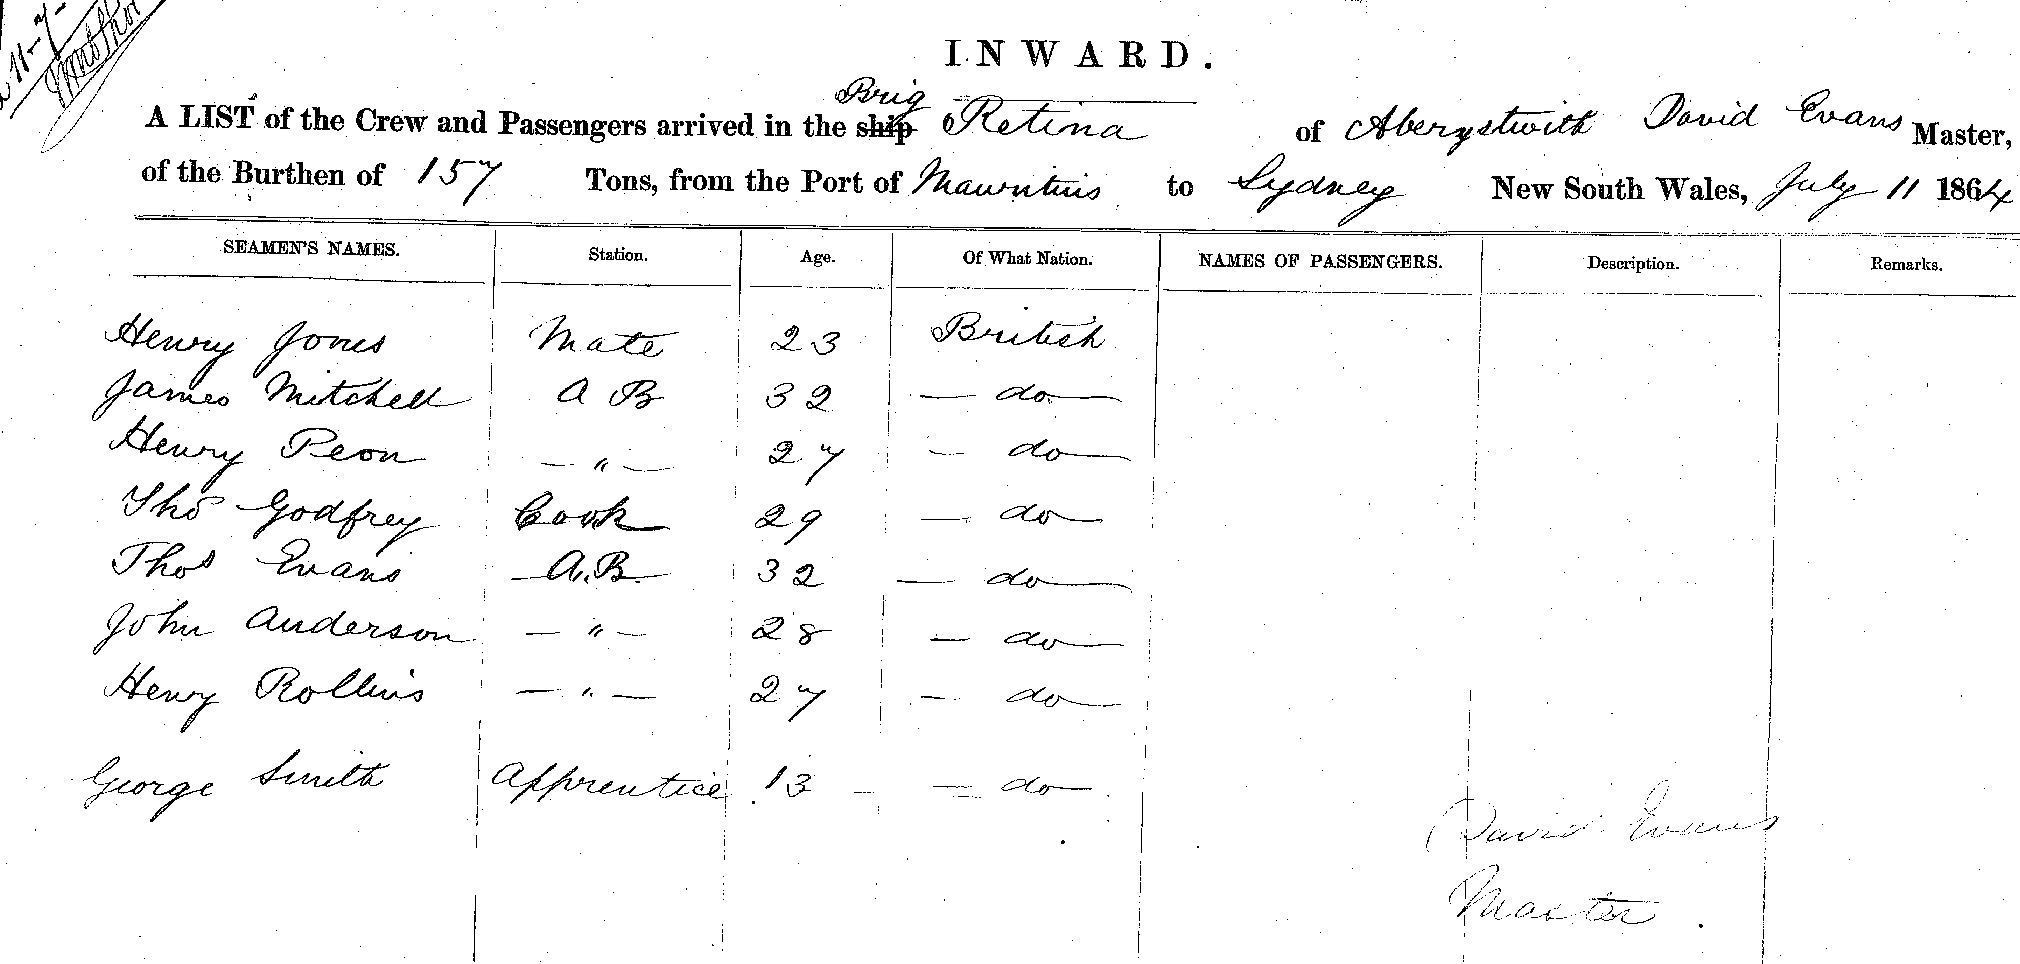 11-7-
INWARD.
Brig
A LIST of the Crew and Passengers arrived in the ship Retina of Aberystwith David Evans Master,
of the Burthen of 157 Tons, from the Port of Mauritius to Sydney New South Wales, July 11 1864
SEAMEN'S NAMES. Station. Age. Of What Nation. NAMES OF PASSENGERS. Description. Remarks.
Henry Jones Mate 23 British
James Mitchell A B 32 — do —
Henry Peon — " — 27 — do —
Thos Godfrey Cook 29 — do —
Thos Evans A.B. 32 — do —
John Anderson — " — 28 — do —
Henry Rollins — " — 27 — do —
George Smith Apprentice 13 — — do —
David Evans
Master